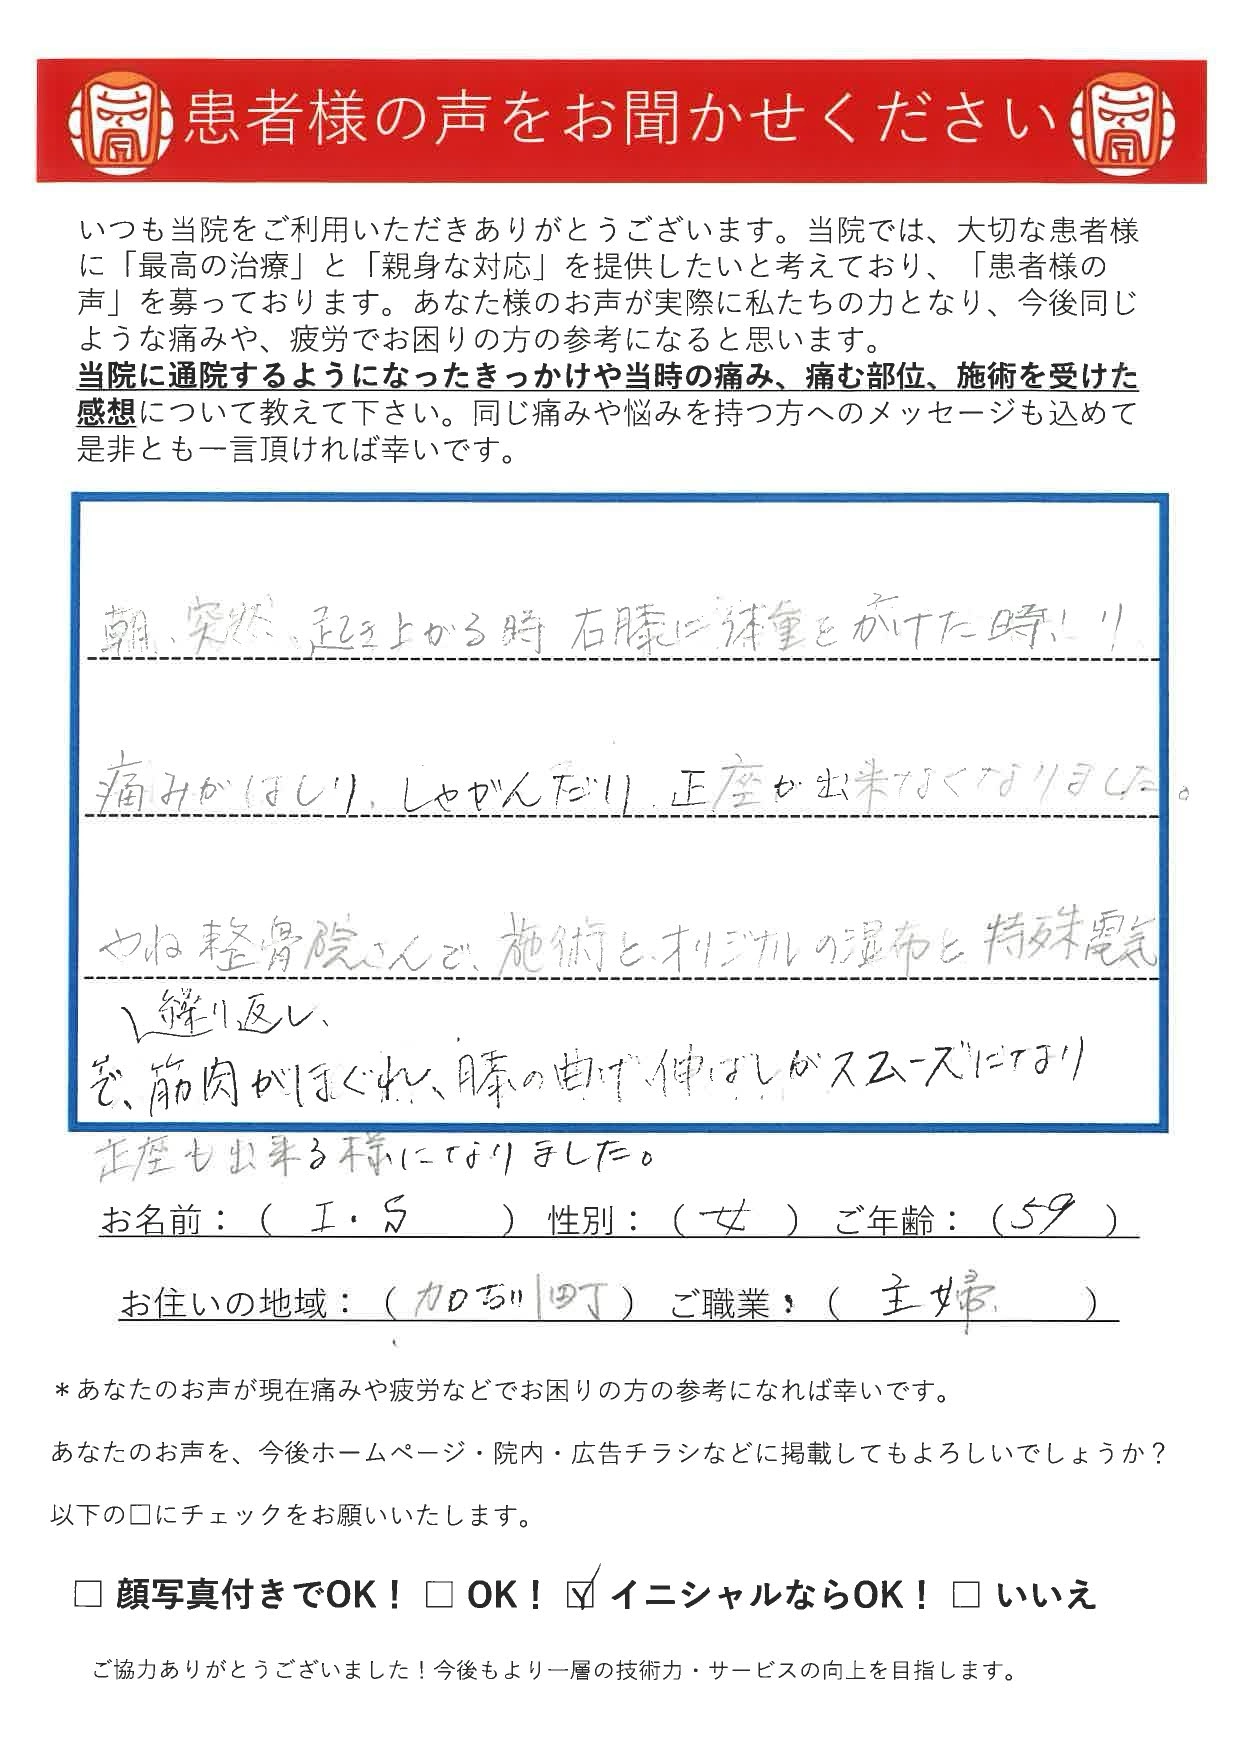 患者様の声をお聞かせください
いつも当院をご利用いただきありがとうございます。当院では、大切な患者様
に「最高の治療」と「親身な対応」を提供したいと考えており、「患者様の
声」を募っております。あなた様のお声が実際に私たちの力となり、今後同じ
ような痛みや、疲労でお困りの方の参考になると思います。
当院に通院するようになったきっかけや当時の痛み、痛む部位、施術を受けた
感想について教えて下さい。同じ痛みや悩みを持つ方へのメッセージも込めて
是非とも一言頂ければ幸いです。
朝、突然、起き上がる時 右膝に体重をかけた時より
痛みがはしり、しゃがんだり、正座が出来なくなりました。
やね整骨院さんで、施術と、オリジナルの湿布と特殊電気
繰り返し、
で、筋肉がほぐれ、膝の曲げ伸ばしがスムーズになり
正座も出来る様になりました。
お名前：（ I・S ） 性別：（女） ご年齢：（59）
お住いの地域：（加古川町） ご職業：（主婦）
＊あなたのお声が現在痛みや疲労などでお困りの方の参考になれば幸いです。
あなたのお声を、今後ホームページ・院内・広告チラシなどに掲載してもよろしいでしょうか？
以下の□にチェックをお願いいたします。
□ 顔写真付きでOK！ □ OK！ ☑ イニシャルならOK！ □ いいえ
ご協力ありがとうございました！今後もより一層の技術力・サービスの向上を目指します。